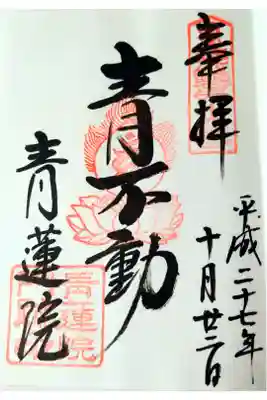 奉拝
平成二十七年
十月廿二日
青不動
青蓮院
青蓮院